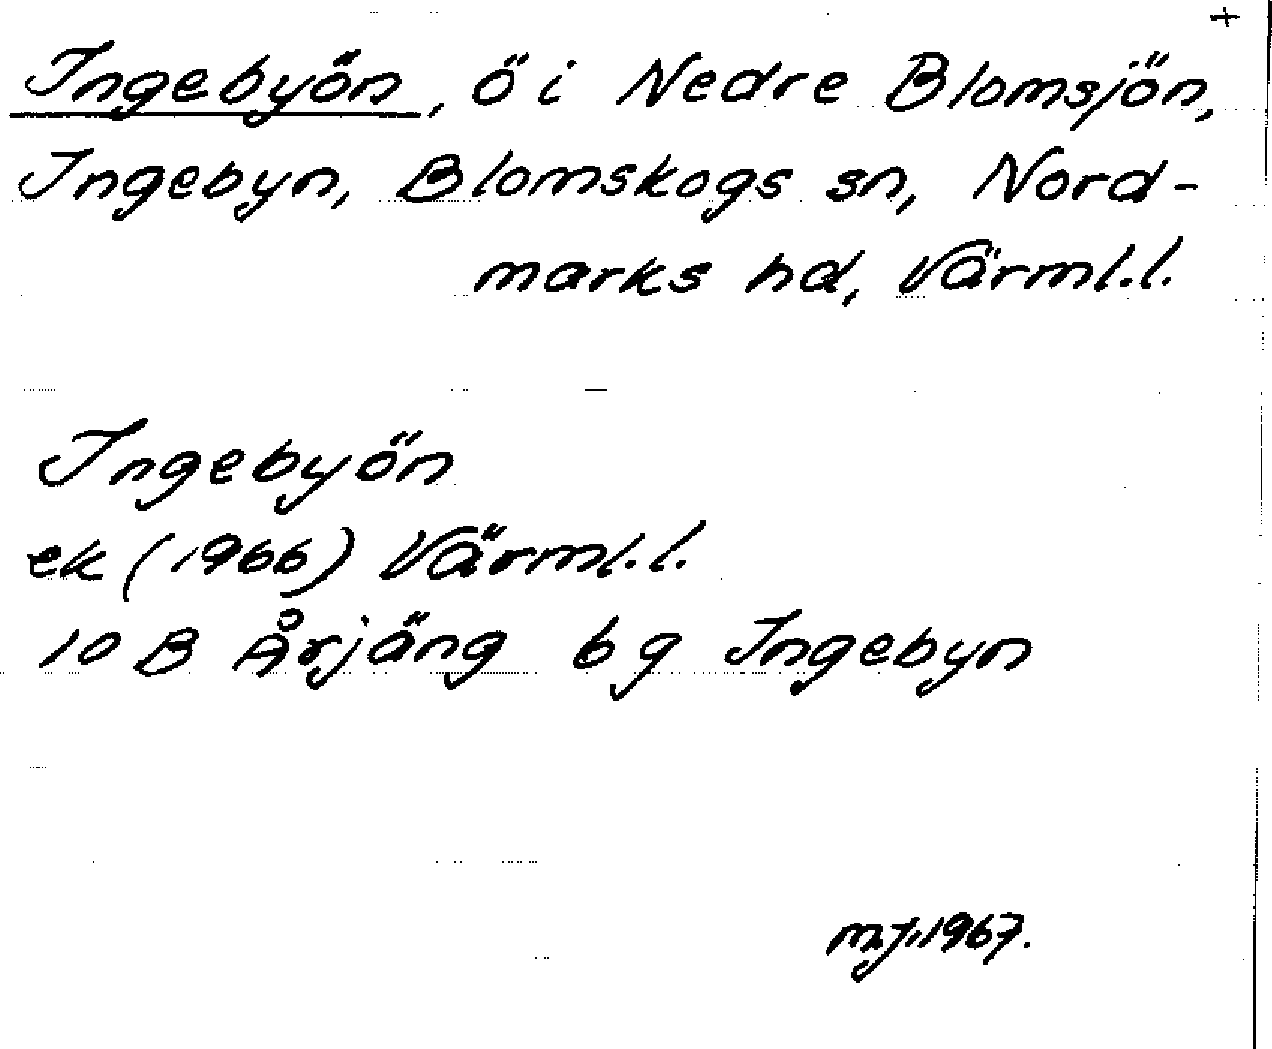 +
Ingebyön, ö i Nedre Blomsjön,
Ingebyn, Blomskogs sn, Nord-
marks hd, Värml.l.
Ingebyön
ek (1966) Värml.l.
10 B Årjäng 6 g Ingebyn
1967.